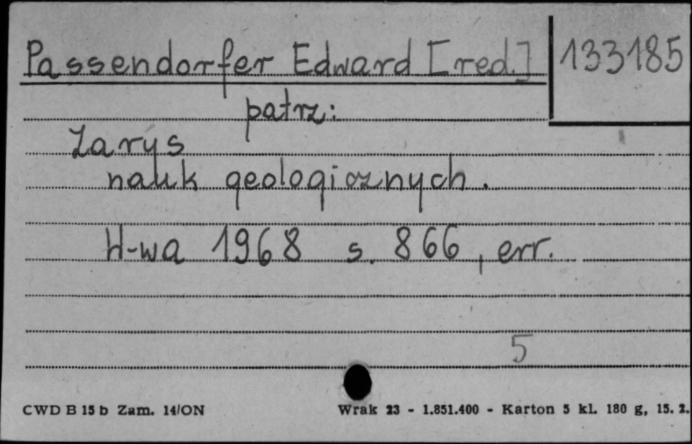 Passendorfer Edward [red.] 133185
patrz:
Zarys
nauk geologicznych.
W-wa 1968 s. 866, err.
5
CWD B 15 b Zam. 14/ON Wrak 23 - 1.851.400 - Karton 5 kl. 180 g, 15. 2.